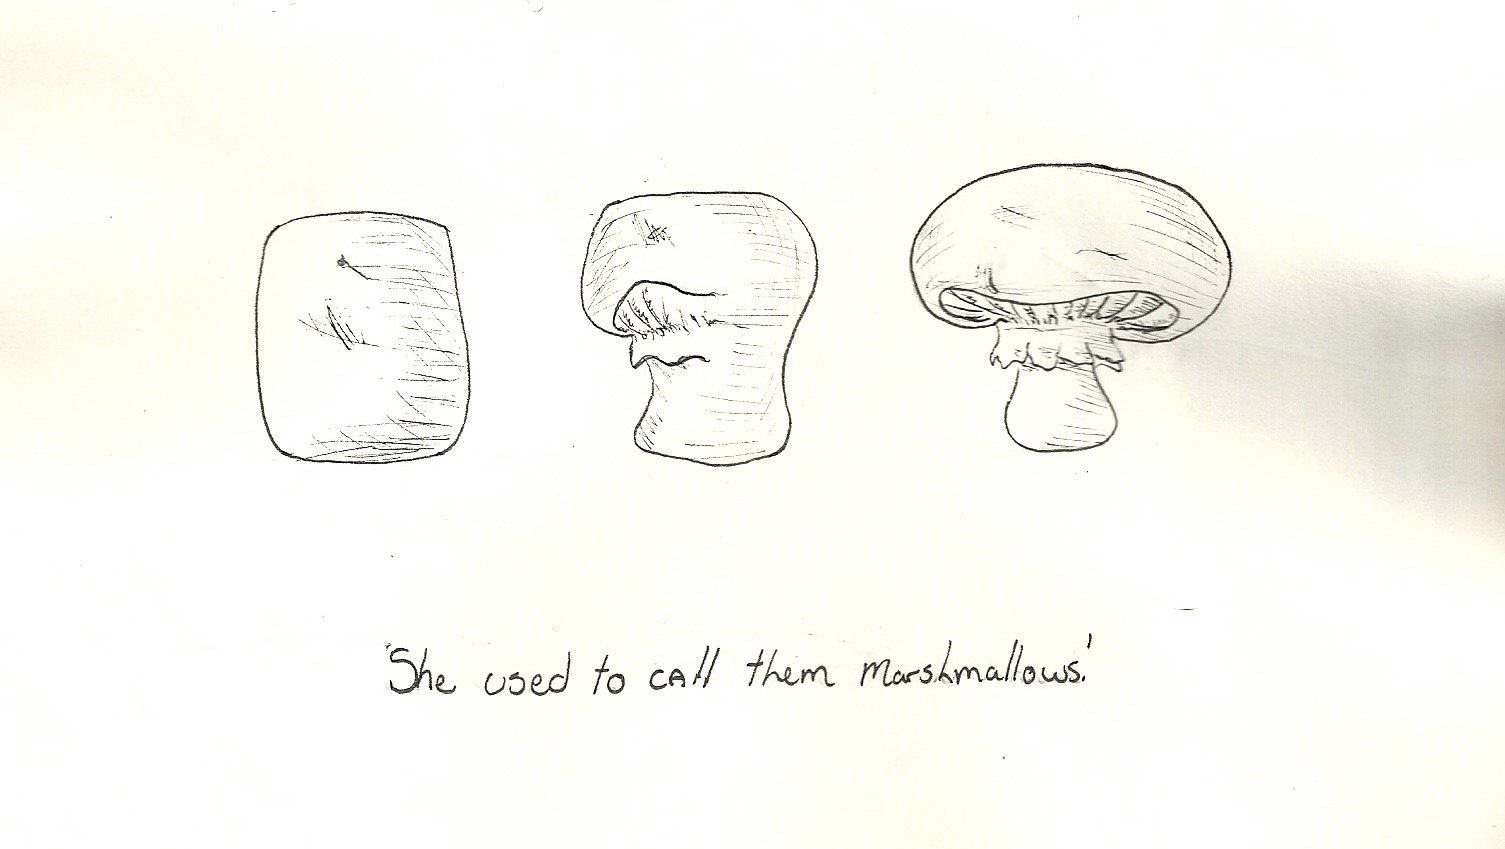 'She used to call them marshmallows.'